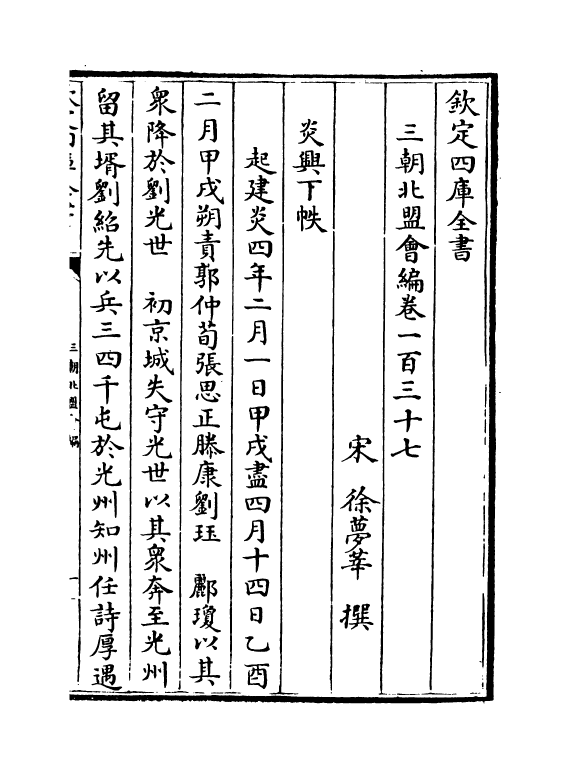 欽定四庫全書
三朝北盟會編卷一百三十七
宋 徐夢莘 撰
炎興下帙
起建炎四年二月一日甲戌盡四月十四日乙酉
二月甲戌朔責郭仲荀張思正滕康劉珏 酈瓊以其
衆降於劉光世 初京城失守光世以其衆奔至光州
留其壻劉紹先以兵三四千屯於光州知州任詩厚遇
三朝北盟會編